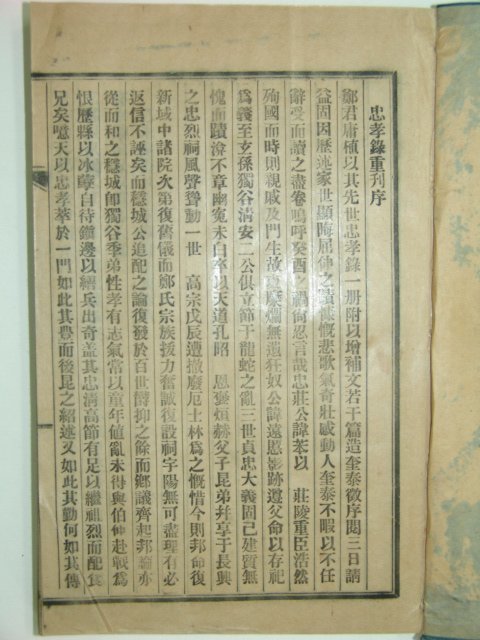 忠孝錄重刊序
鄭君庸植以其先世忠孝錄一冊附以增補文若干篇造奎泰徵序閱三日請
益固因歷述家世顯晦屈伸之蹟慷慨悲歌氣奇壯感動人奎泰不暇以不任
辭受而讀之盡卷嗚呼癸酉之禍尙忍言哉忠莊公諱苯以 莊陵重臣浩然
殉國而時則親戚及門生故吏糜爛無遺狂奴公諱遠慝影跡遵父命以存祀
爲義至玄孫獨谷淸安二公俱立節于龍蛇之亂三世貞忠大義固已建質無
愧而蹟淪不章幽寃未白卒以天道孔昭 恩褒烜赫父子昆弟幷享于長興
之忠烈祠風聲聳動一世 高宗戊辰遭撤廢厄士林爲之慨惜今則邦命復
新域中諸院次第復舊儀而鄭氏宗族援力奮誠復設祠宇陽無可盡理有必
返信不誣矣而穩城公追配之論復發於百世欝抑之餘而鄕議齊起邦論亦
從而和之穩城卽獨谷季弟性孝有志氣常以童年値亂未得與伯仲赴戰爲
恨歷縣以冰蘖自待鎭邊以繕兵出奇盖其忠淸高節有足以繼祖烈而配食
兄矣噫天以忠孝萃於一門如此其豊而後昆之紹述又如此其勤何如其傳